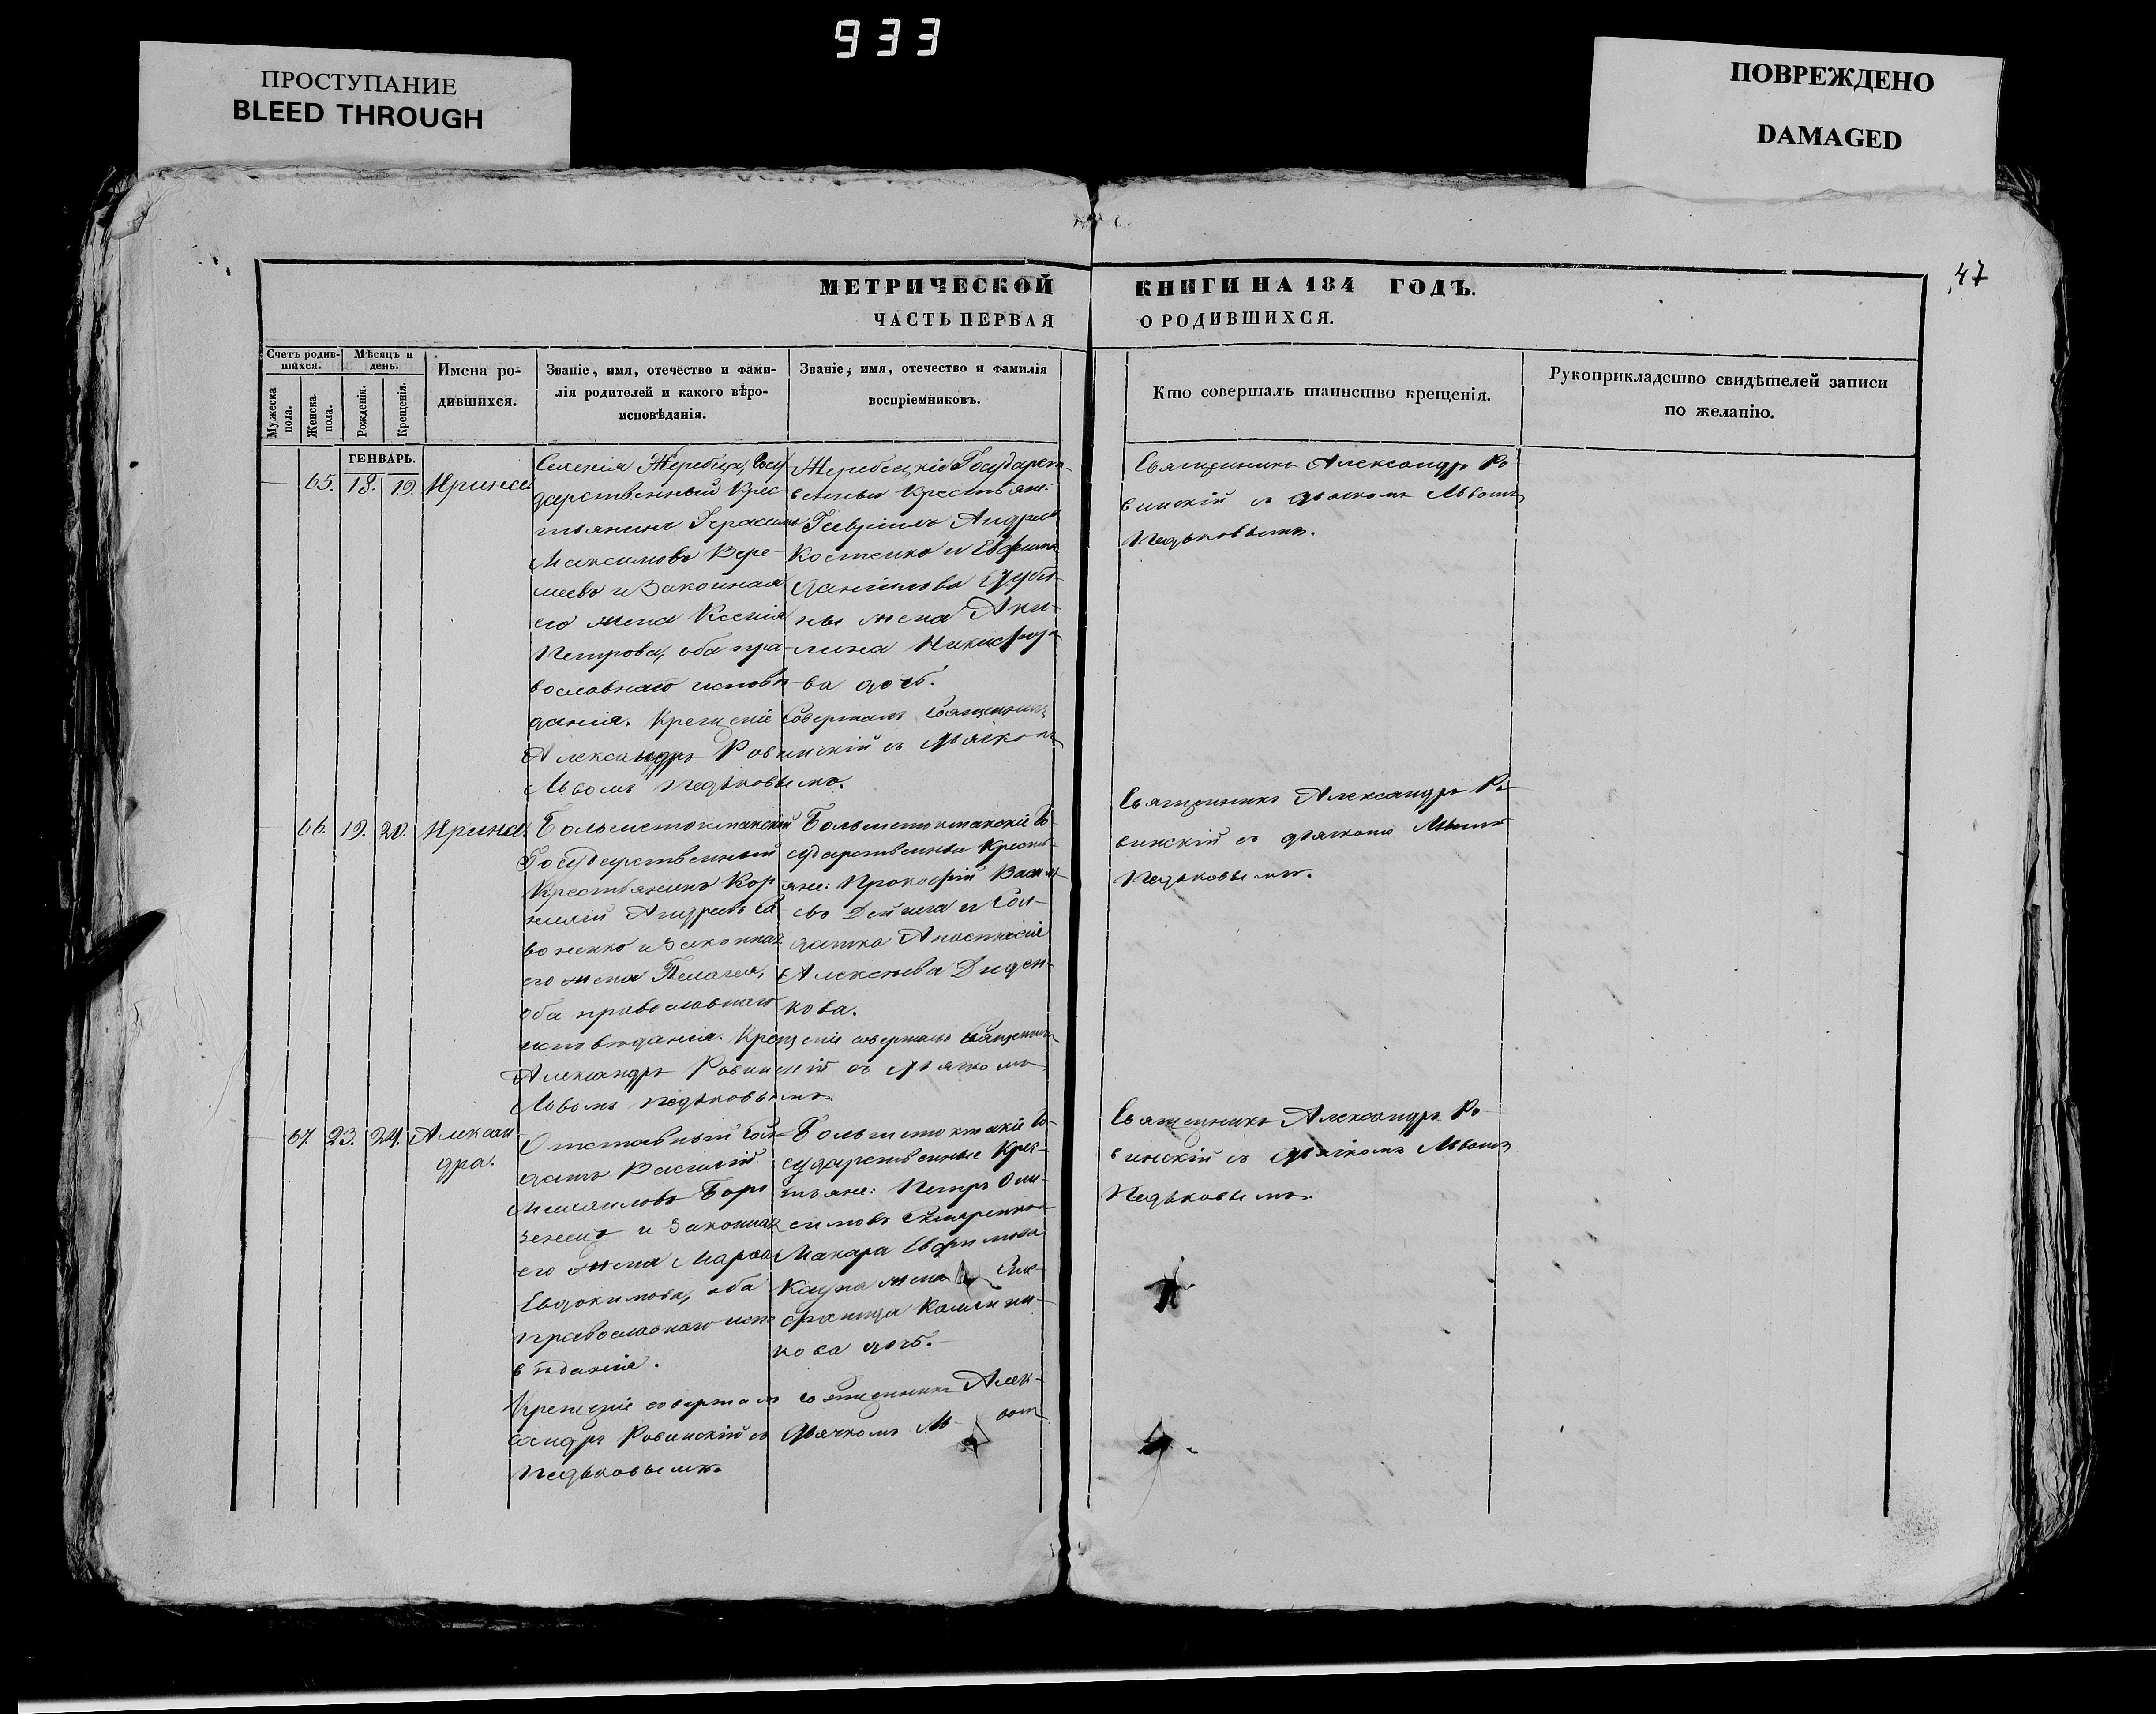 933
ПРОСТУПАНИЕ
BLEED THROUGH
ПОВРЕЖДЕНО
DAMAGED
47
МЕТРИЧЕСКОЙ КНИГИ НА 184 ГОДЪ.
ЧАСТЬ ПЕРВАЯ О РОДИВШИХСЯ.
Счетъ родив-
шихся.
Мужеска пола.
Женска пола.
Мѣсяцъ и
день.
Рожденія.
Крещенія.
Имена ро-
дившихся.
Званіе, имя, отечество и фами-
лія родителей и какого вѣро-
исповѣданія.
Званіе, имя, отечество и фамилія
воспріемниковъ.
Кто совершалъ таинство крещенія.
Рукоприкладство свидѣтелей записи
по желанію.
ГЕНВАРЬ.
65. 18. 19. Ирина
Селенія Жеребца, Госу
дарственный Крес-
тьянинъ Герасимъ
Максимовъ Вере-
меевъ и Законная
его жена Ксенія
Петрова, оба пра-
вославнаго исповѣ-
данія. Крещеніе совершалъ Священникъ
Александръ Ровинскій съ дьячкомъ
Львомъ Педьковымъ.
Жеребецкіе Государст-
венные Крестьяне:
Гавріилъ Андреевъ
Костенко и Евфимія
Даніилова
ны жена Аку-
лина Никифоро-
ва дочь.
Священникъ Александръ Ро-
винскій съ дьячкомъ Львомъ
Педьковымъ.
66. 19. 20. Ирина.
Большетокмакскій
Государственный
Крестьянинъ Кор-
нилій Андреевъ Са
воненко и Законная
его жена Пелагея,
оба православнаго
исповѣданія. Крещеніе совершалъ Священникъ
Александръ Ровинскій съ дьячкомъ
Львомъ Педьковымъ.
Большетокмакскіе Го-
сударственные Кресть-
яне: Прокофій Василь
евъ Дейнега и Сол-
датка Анастасія
Алексѣева Диден-
кова.
Священникъ Александръ Ро-
винскій съ дьячкомъ Львомъ
Педьковымъ.
67. 23. 24. Алексан
дра.
Отставный Сол-
датъ Василій
Михаиловъ
и Законная
его жена Марѳа
Евдокимова, оба
православнаго испо
вѣданія.
Крещеніе совершалъ Священникъ Алек-
сандръ Ровинскій съ дьячкомъ Львомъ
Педьковымъ.
Большетокмакскіе Го-
сударственные Крес-
тьяне: Петръ Они-
симовъ
Макара Евфимова
жена
Калини-
кова дочь.
Священникъ Александръ Ро-
винскій съ дьячкомъ Львомъ
Педьковымъ.